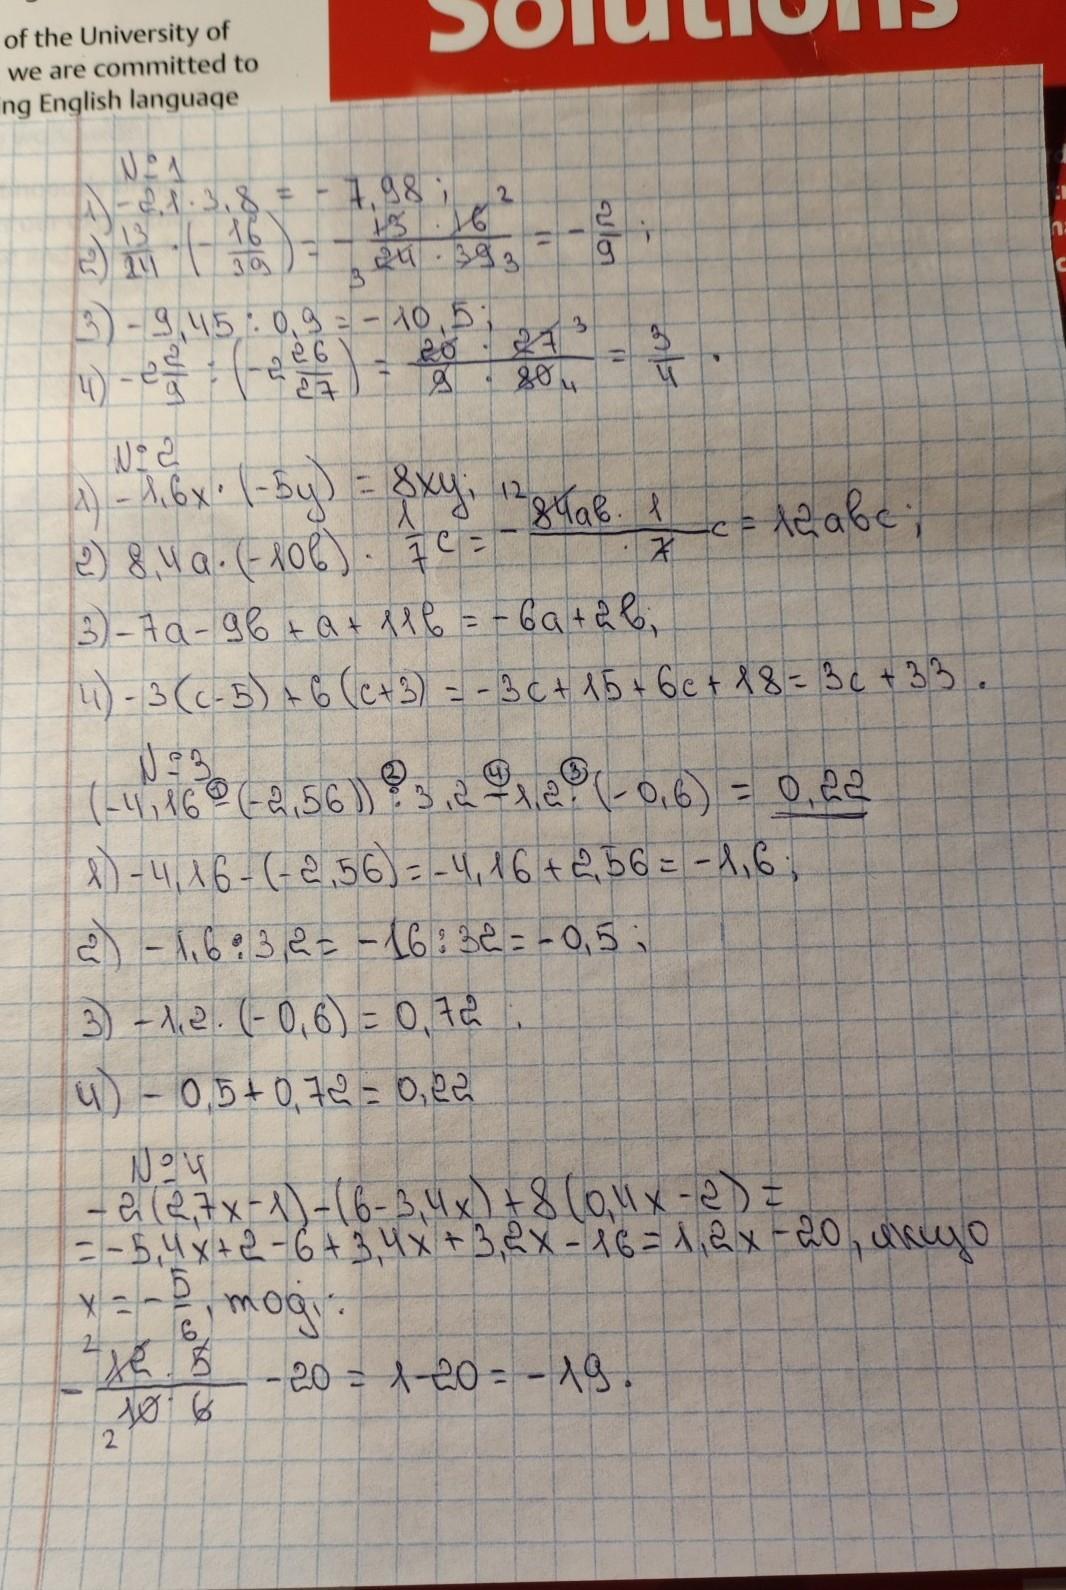 Solutions
of the University of
we are committed to
ing English language
№1
1) -2,1 · 3,8 = -7,98;
2) 13/24 · (-16/39) = - 13 · 16 2 / 3 24 · 39 3 = - 2/9;
3) -9,45 : 0,9 = -10,5;
4) -2 2/9 : (-2 26/27) = 20 · 27 3 / 9 · 80 4 = 3/4.
№2
1) -1,6x · (-5y) = 8xy;
2) 8,4a · (-10b) · 1/7 c = - 12 84ab · 1 / · 7 c = 12abc;
3) -7a - 9b + a + 11b = -6a + 2b;
4) -3(c-5) + 6(c+3) = -3c + 15 + 6c + 18 = 3c + 33.
№3
(-4,16 ① - (-2,56)) ② : 3,2 ④ - 1,2 ③ · (-0,6) = 0,22
1) -4,16 - (-2,56) = -4,16 + 2,56 = -1,6;
2) -1,6 : 3,2 = -16 : 32 = -0,5;
3) -1,2 · (-0,6) = 0,72;
4) -0,5 + 0,72 = 0,22
№4
-2(2,7x-1) - (6-3,4x) + 8(0,4x-2) =
= -5,4x + 2 - 6 + 3,4x + 3,2x - 16 = 1,2x - 20, якщо
x = - 5/6, тоді:
- 2 12 · 5 / 2 10 · 6 - 20 = 1 - 20 = -19.